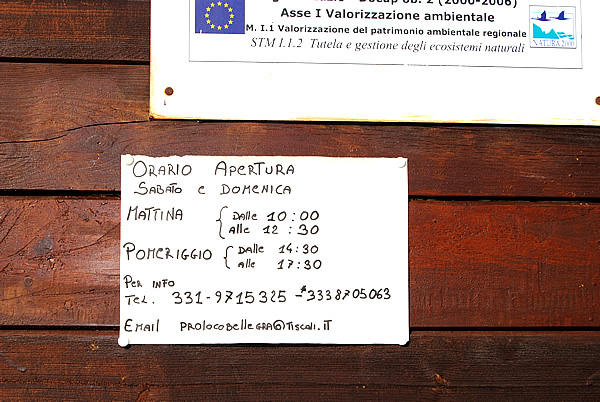 Docup ob. 2 (2000-2006)
Asse I Valorizzazione ambientale
M. I.1 Valorizzazione del patrimonio ambientale regionale
STM I.1.2 Tutela e gestione degli ecosistemi naturali
NATURA 2000
ORARIO APERTURA
SABATO e DOMENICA
MATTINA { Dalle 10:00
alle 12:30
POMERIGGIO { Dalle 14:30
alle 17:30
PER INFO
TEL. 331-9715325 - *3338705063
EMAIL prolocobellegra@Tiscali.it